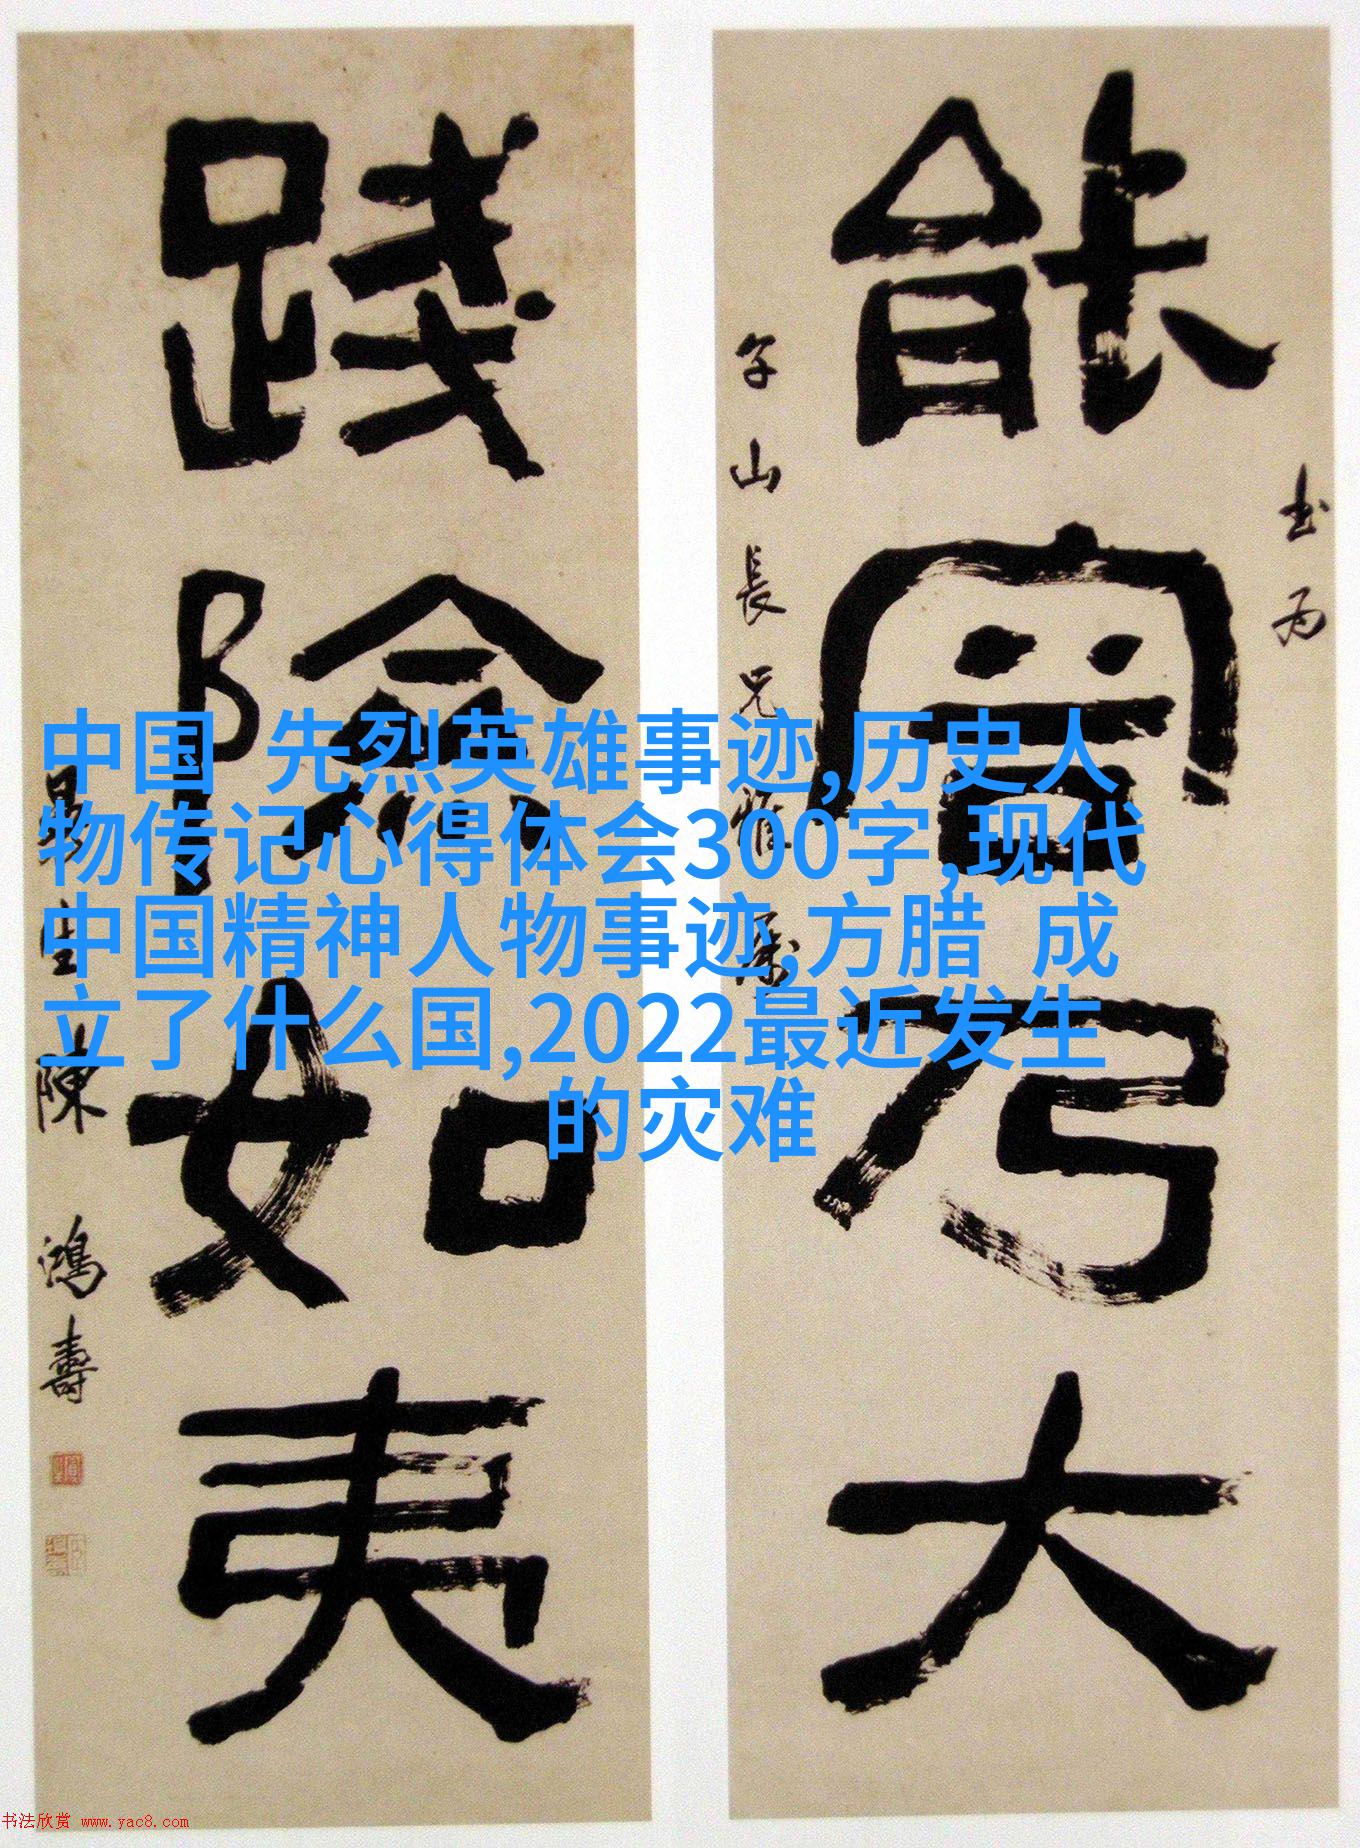 書為
能容乃大
山長兄
踐險如夷
曼生陳鴻壽
中国 先烈英雄事迹,历史人
物传记心得体会300字,现代
中国精神人物事迹,方腊 成
立了什么国,2022最近发生
的灾难
书法欣赏 www.yac8.com